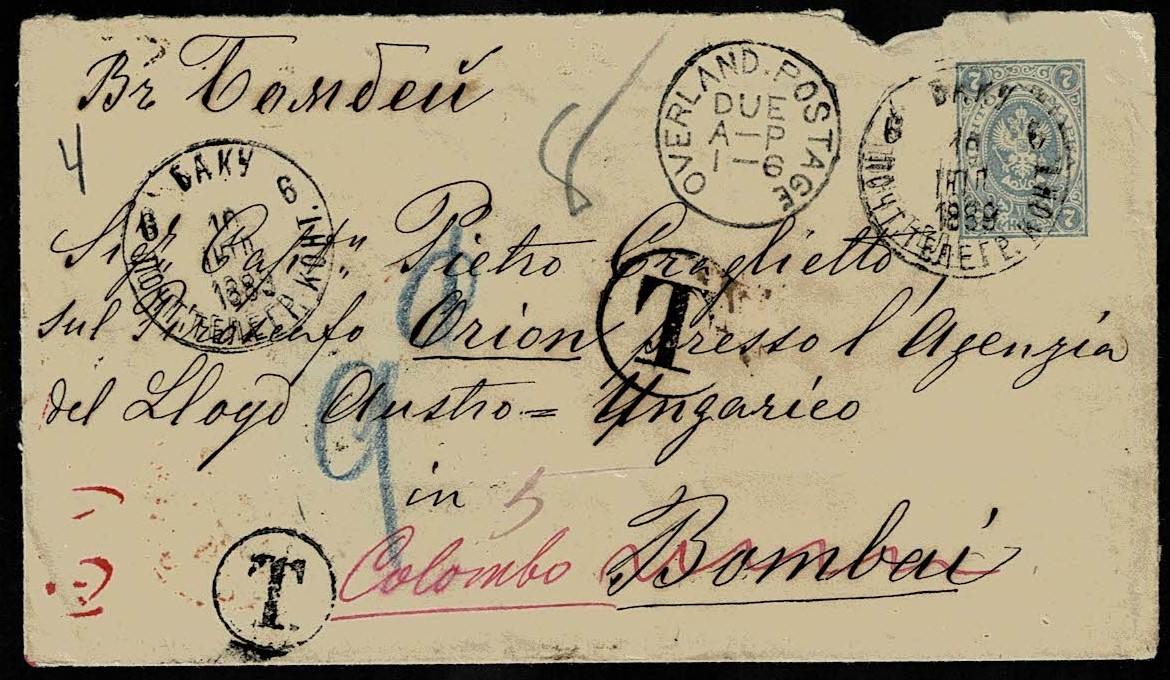 Въ Бомбей
4
8
OVERLAND. POSTAGE
DUE
A—P
1—6
БАКУ
6 6
1889
ПОЧТ. ТЕЛЕГР. КОНТ.
7
7
7
БАКУ
6 6
ПОЧТ. ТЕЛЕГР. КОНТ.
Sigr Pietro
sul Orion presso l'Agenzia
del Lloyd Austro=Ungarico
T
9
in 5
Colombo Bombai
T